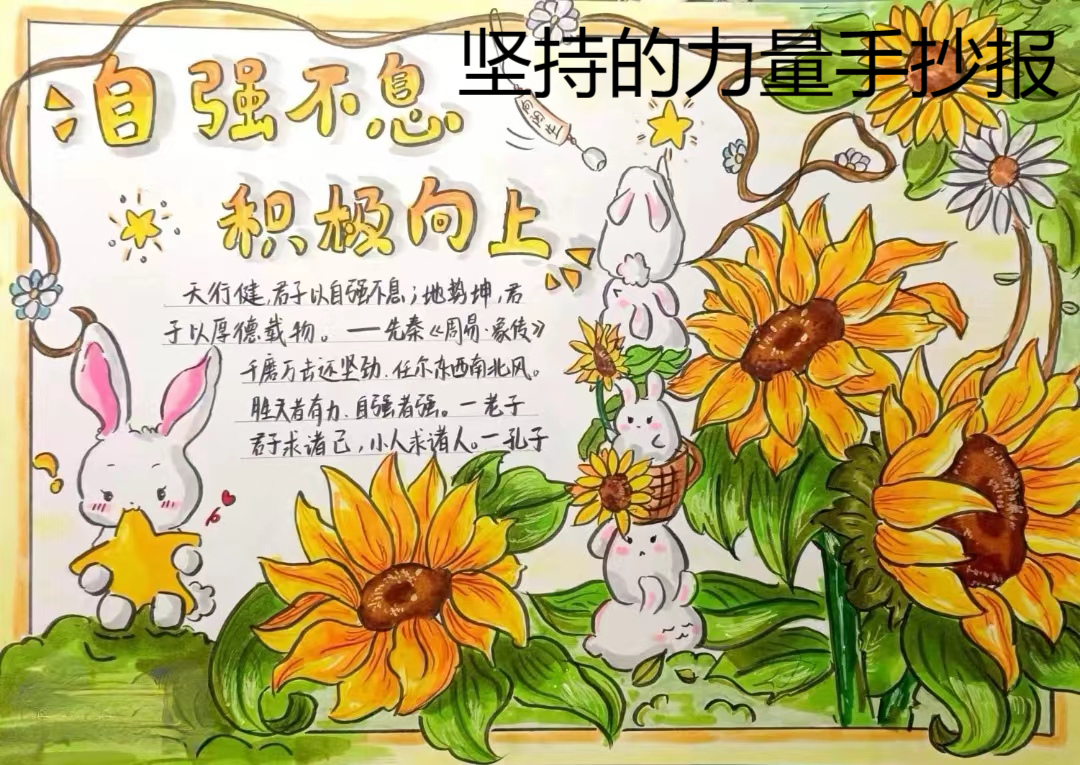 坚持的力量手抄报
自强不息
向阳生
积极向上
天行健,君子以自强不息;地势坤,君
子以厚德载物。——先秦《周易·象传》
千磨万击还坚劲、任尔东西南北风。
胜天者有力、自强者强。—老子
君子求诸己,小人求诸人。—孔子